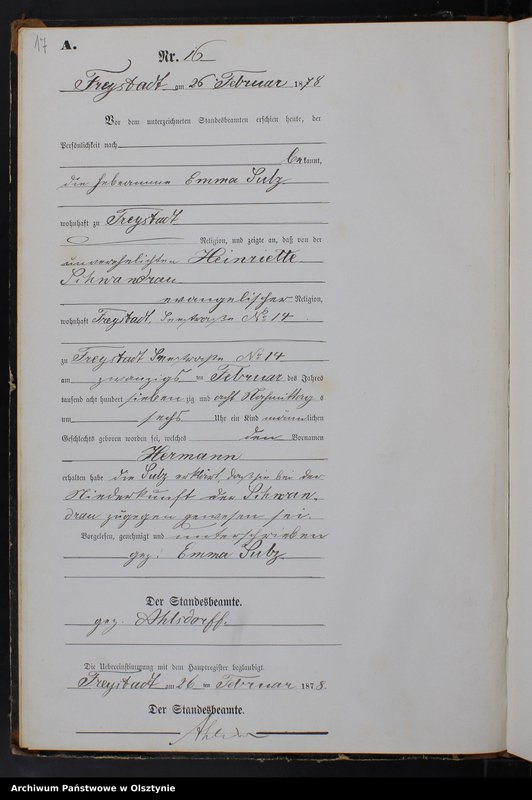 17
A.
Nr. 16
Freystadt am 26 Februar 1878
Vor dem unterzeichneten Standesbeamten erschien heute, der
Persönlichkeit nach
bekannt,
die Hebeamme Emma Sulz
wohnhaft zu Freystadt
Religion, und zeigte an, daß von der
unverehelichten Heinriette
Schwandrau
evangelischer Religion,
wohnhaft Freystadt, Seestraße No 14
zu Freystadt Seestraße No 14
am zwanzigs ten Februar des Jahres
tausend acht hundert sieben zig und acht Nachmittag s
um sechs Uhr ein Kind männlichen
Geschlechts geboren worden sei, welches den Vornamen
Hermann
erhalten habe die Sulz erklärt, daß sie bei der
Niederkunft der Schwan-
drau zugegen gewesen sei.
Vorgelesen, genehmigt und unterschrieben
gez: Emma Sulz
Der Standesbeamte.
gez. Ahlsdorff.
Die Uebereinstimmung mit dem Hauptregister beglaubigt.
Freystadt am 26 ten Februar 1878.
Der Standesbeamte.
Archiwum Państwowe w Olsztynie